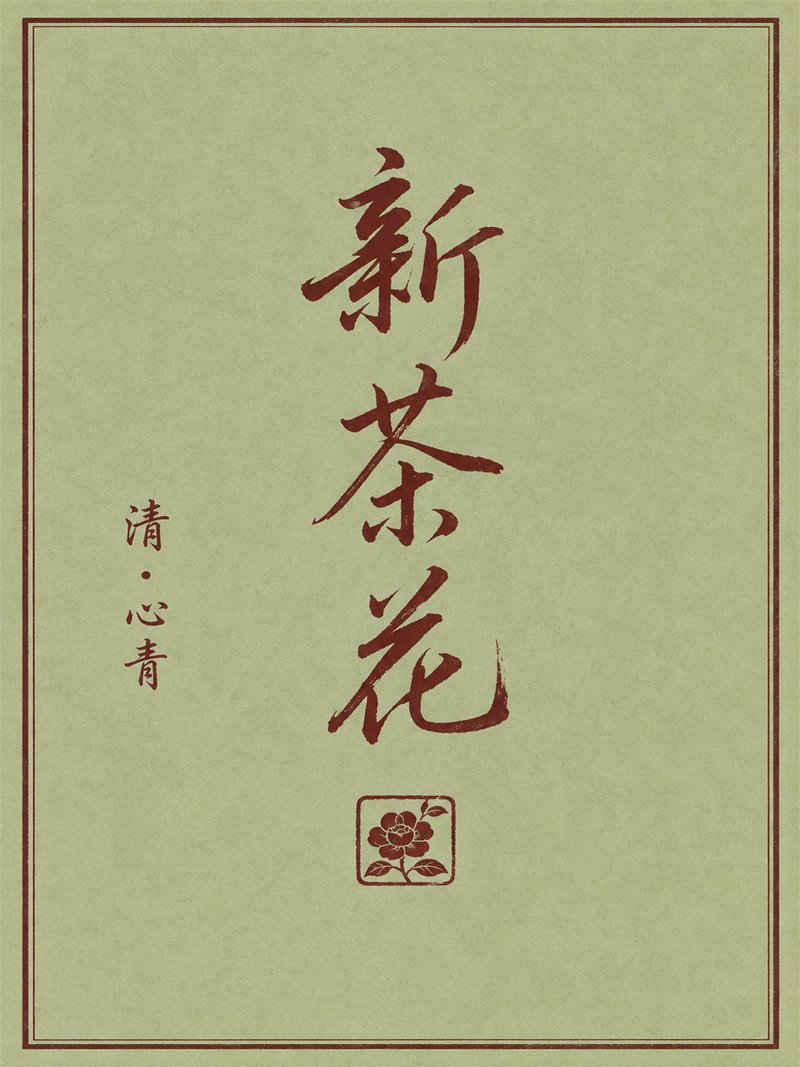 新茶花
清·心青